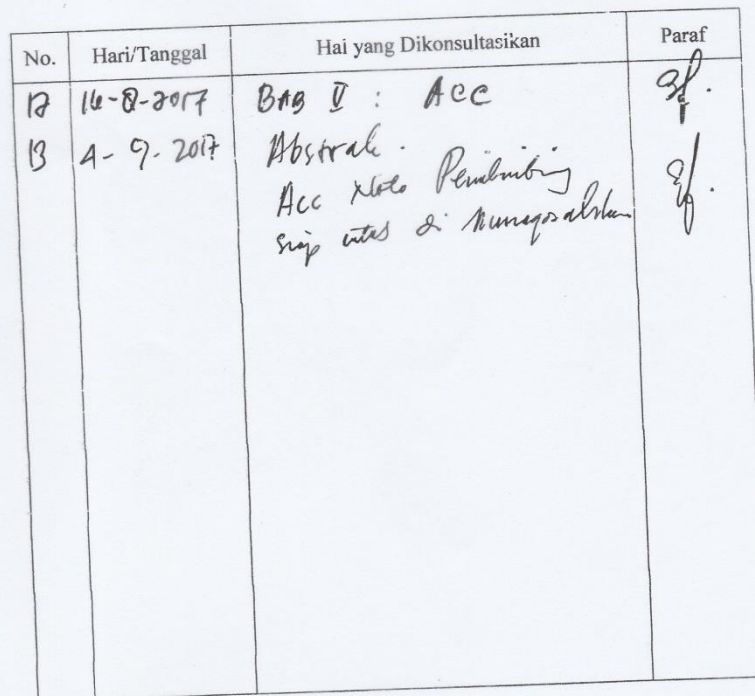 No. Hari/Tanggal Hal yang Dikonsultasikan Paraf
12 16-8-2017 BAB V : ACC
13 4-9-2017 Abstrak.
Acc Nota Pembimbing
siap untuk di munaqosahkan